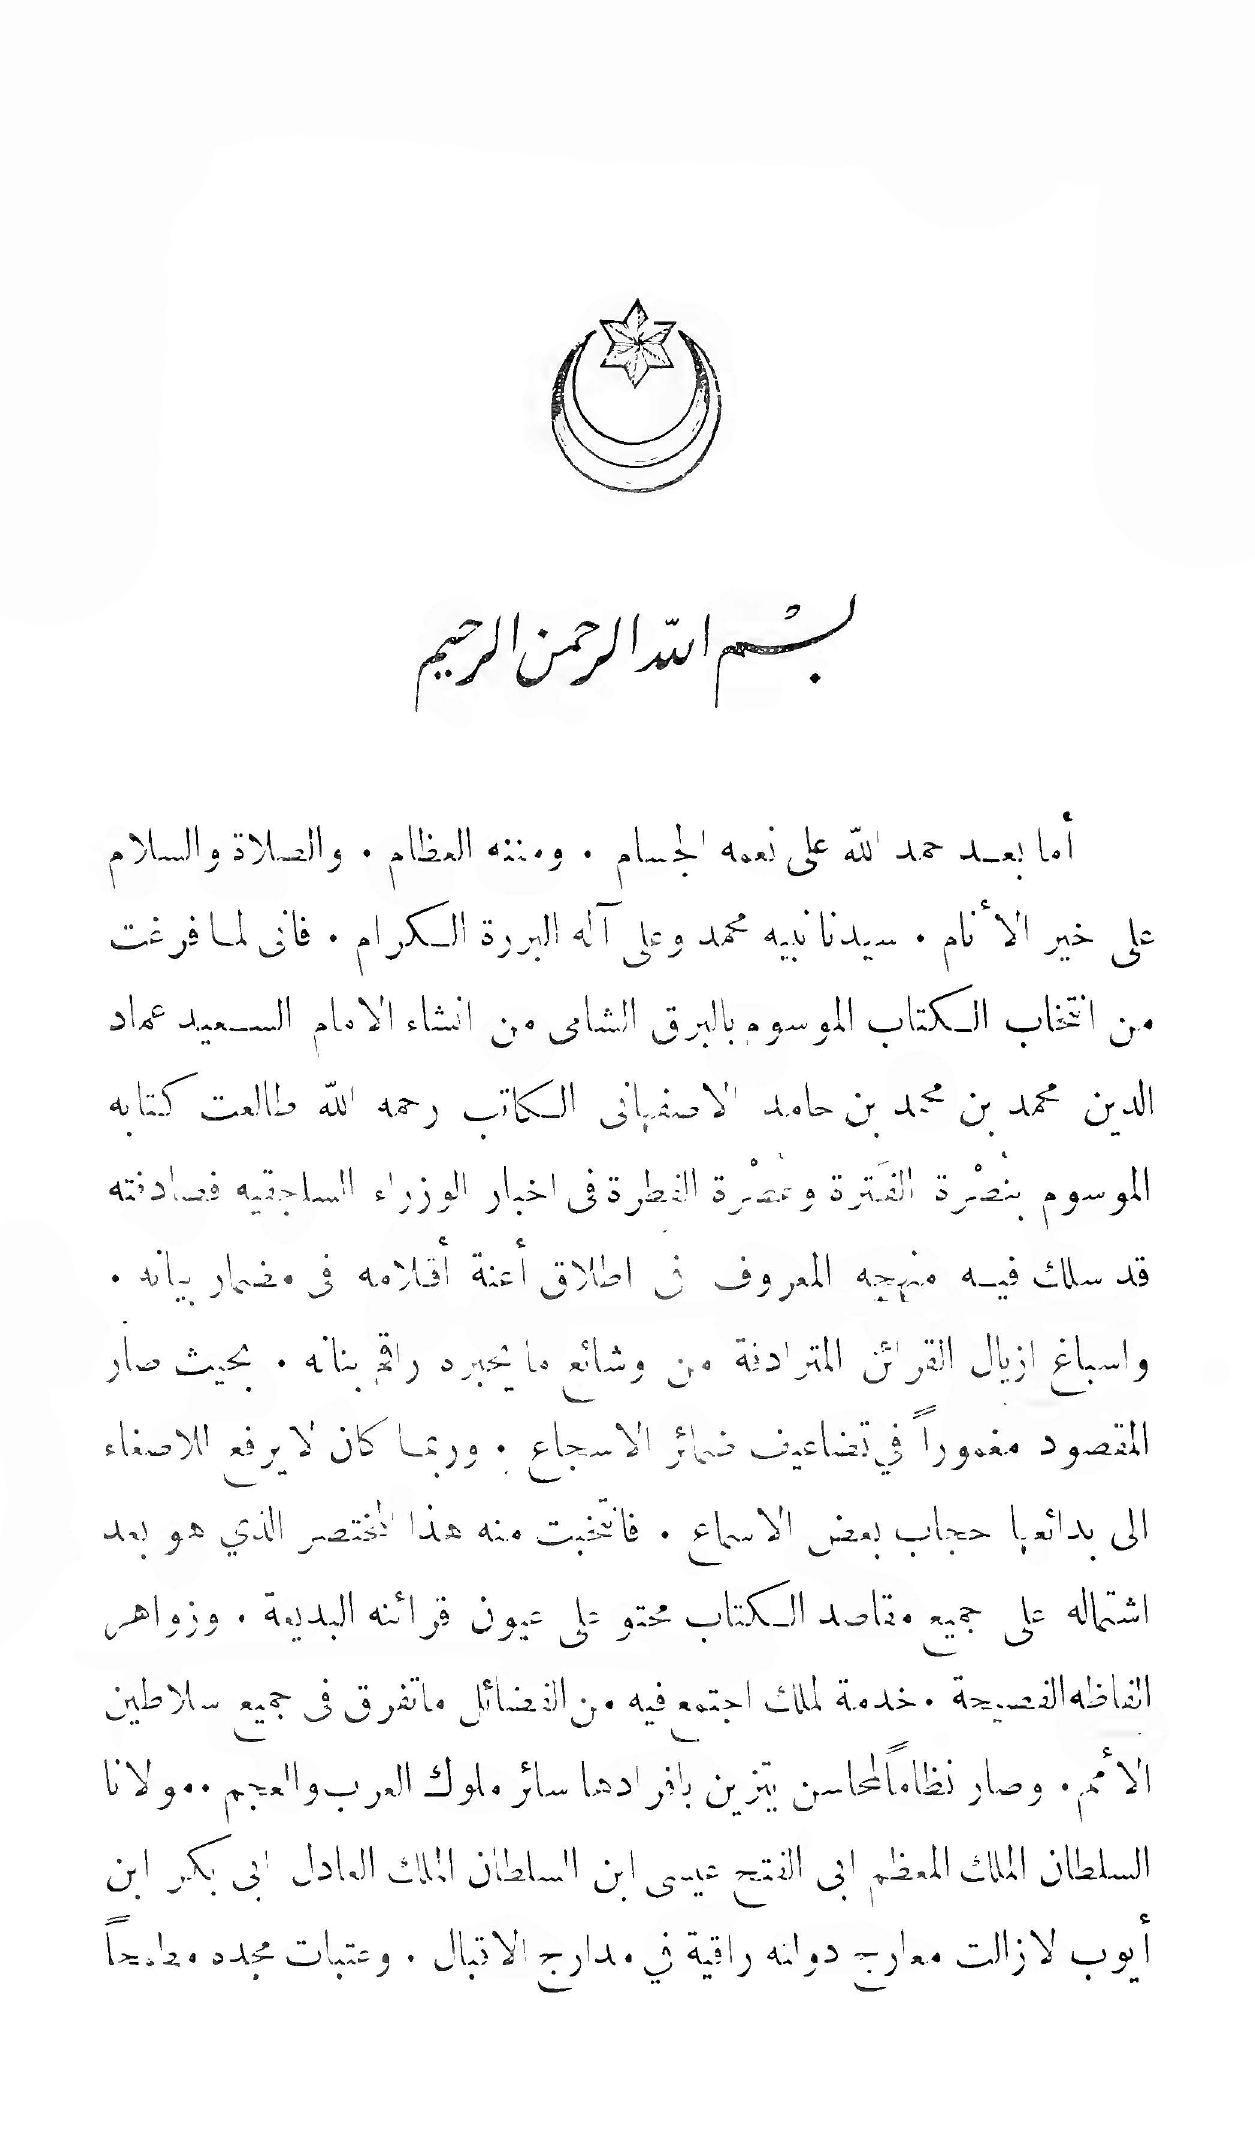 بسم الله الرحمن الرحيم
أما بعد حمد الله على نعمه الجسام . ومننه العظام . والصلاة والسلام
على خير الأنام . سيدنا نبيه محمد وعلى آله البررة الكرام . فانى لما فرغت
من انتخاب الكتاب الموسوم بالبرق الشامى من انشاء الامام السعيد عماد
الدين محمد بن محمد بن حامد الاصفهانى الكاتب رحمه الله طالعت كتابه
الموسوم بنصْرة الفَترة وعصْرة الفطرة فى اخبار الوزراء السلجقيه فصادفته
قد سلك فيه منهجه المعروف فى اطلاق أعنة أقلامه فى مضمار بيانه .
واسباغ ازيال القرائن المترادفة من وشائع ما يحبره راقم بنانه . بحيث صار
المقصود مغموراً في تضاعيف ضمائر الاسجاع . وربما كان لا يرفع للاصغاء
الى بدائعها حجاب بعض الاسماع . فانتخبت منه هذا المختصر الذي هو بعد
اشتماله على جميع مقاصد الكتاب محتو على عيون قرائنه البديعة . وزواهر
الفاظه الفصيحة . خدمة لملك اجتمع فيه من الفضائل ماتفرق فى جميع سلاطين
الأمم . وصار نظاماً لمحاسن يتزين بافرادها سائر ملوك العرب والعجم . مولانا
السلطان الملك المعظم ابى الفتح عيسى ابن السلطان الملك العادل ابى بكر ابن
أيوب لا زالت معارج دولته راقية في مدارج الاقبال . وعتبات مجده مطمحاً